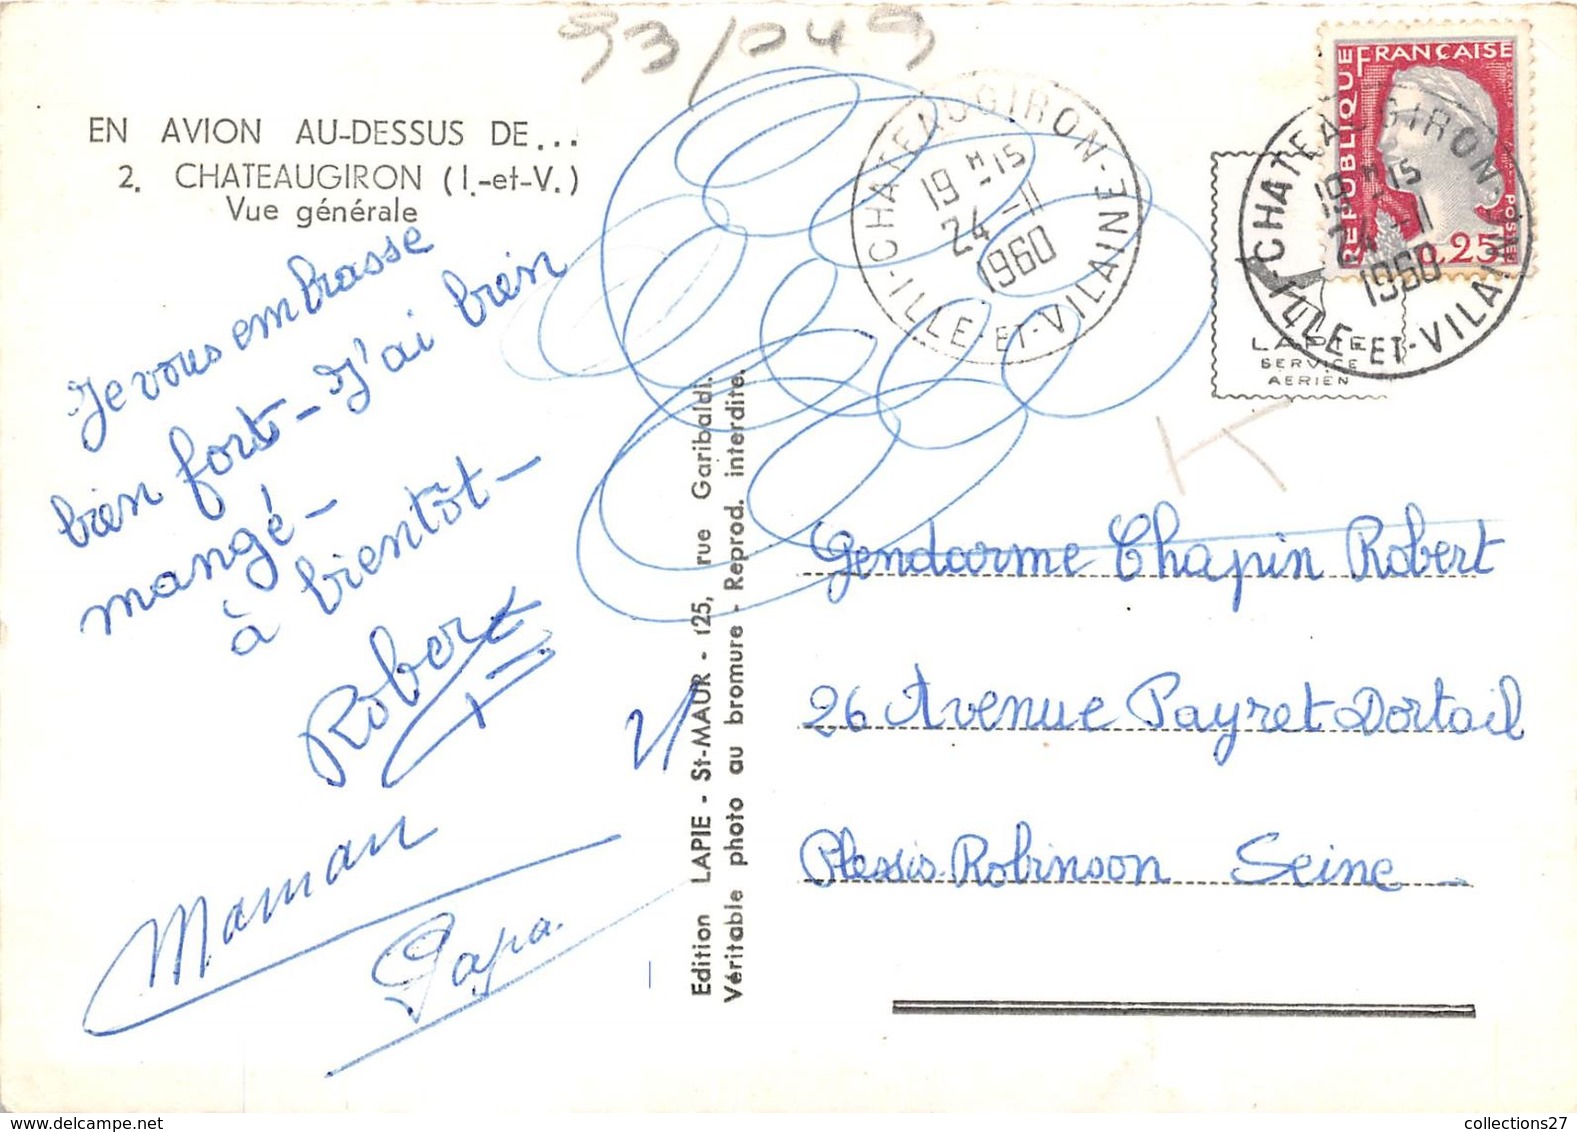 93/049
EN AVION AU-DESSUS DE...
2. CHATEAUGIRON (I.-et-V.)
Vue générale
Je vous embrasse
bien fort - J'ai bien
mangé -
à bientôt -
Robert
Maman
Papa.
Edition LAPIE - St-MAUR - 125, rue Garibaldi.
Véritable photo au bromure - Reprod. interdite.
CHATEAUGIRON - ILLE-ET-VILAINE
19 H 15
24 - 11
1960
REPUBLIQUE FRANÇAISE
POSTES
0,25
CHATEAUGIRON - ILLE-ET-VILAINE
19 H 15
24 - 11
1960
LAPIE
SERVICE
AERIEN
K
Gendarme Chapin Robert
26 Avenue Payret Dortail
Plessis-Robinson Seine
collections27